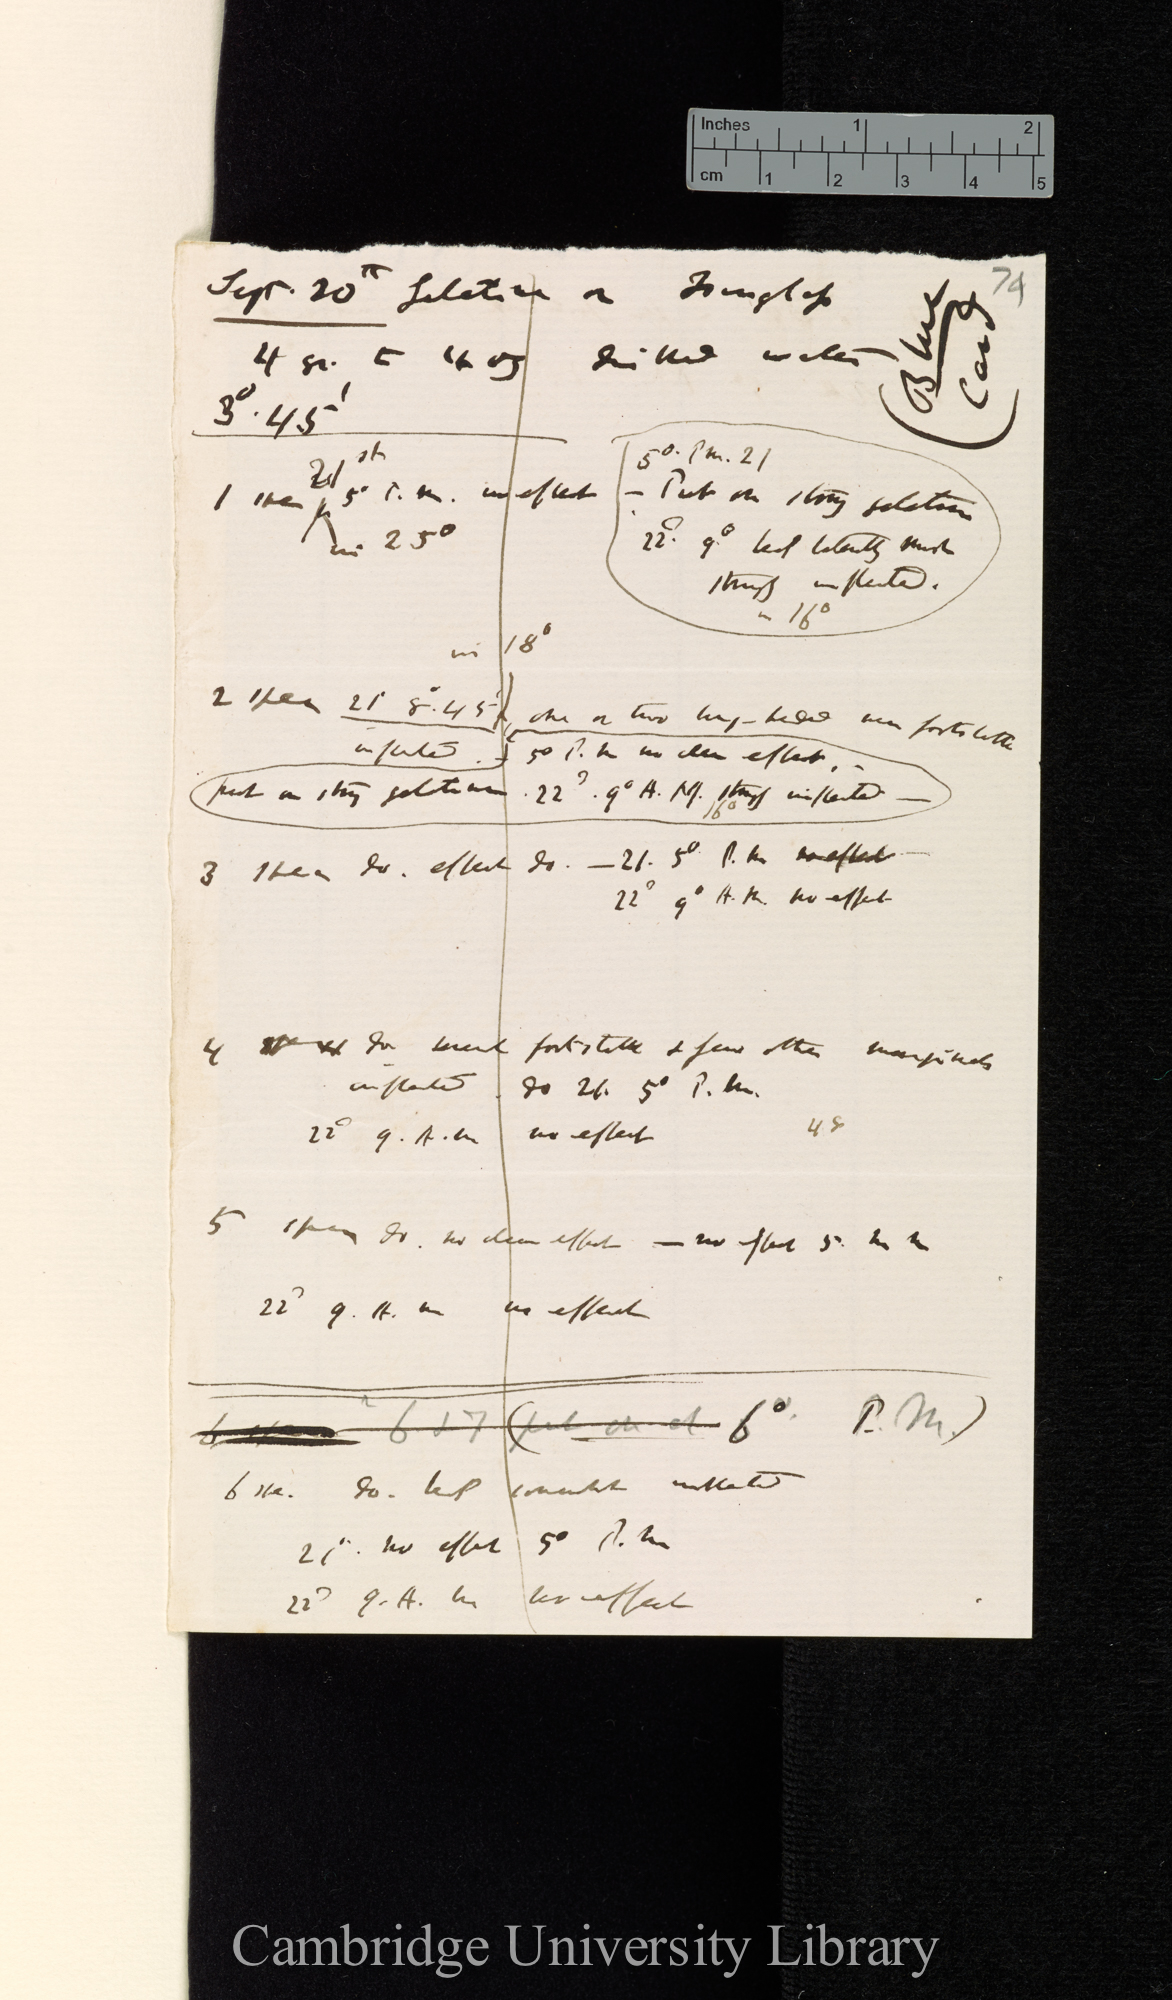 Inches 1 2
cm 1 2 3 4 5
74
Sept. 20th Gelatine on
4 gr. to 4 oz distilled water
(Blue Card)
3°. 45'
21st
1 5° P.M. no effect
in 25°
5° P.m. 21
– Put on strong gelatine
22° 9° leaf much
strongly inflected.
in 16°
in 18°
2 21 8°.45' one or two long-headed
inflected. – 5° P.m no clear effect, –
put on strong gelatine. 22° . 9° A.M. strongly inflected —
16°
3 do. effect do. — 21. 5° P.m no effect —
22° 9° A.m. no effect
4 do several & few other marginals
inflected. do 21. 5° P.m.
22° 9. A.m no effect
48
5 do. no clear effect — no effect 5.
22° 9. A. m no effect
6 & 7 (put on at 6° P.M.)
6 do. leaf somewhat inflected
21. no effect 5° P.m
22° 9. A. m no effect
Cambridge University Library